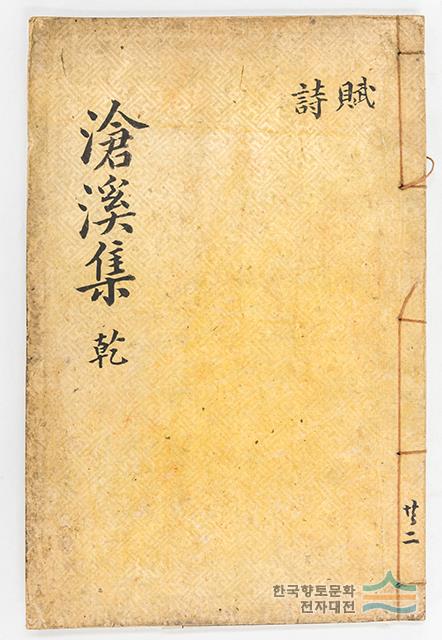 賦
詩
滄溪集 乾
共二
한국향토문화
전자대전